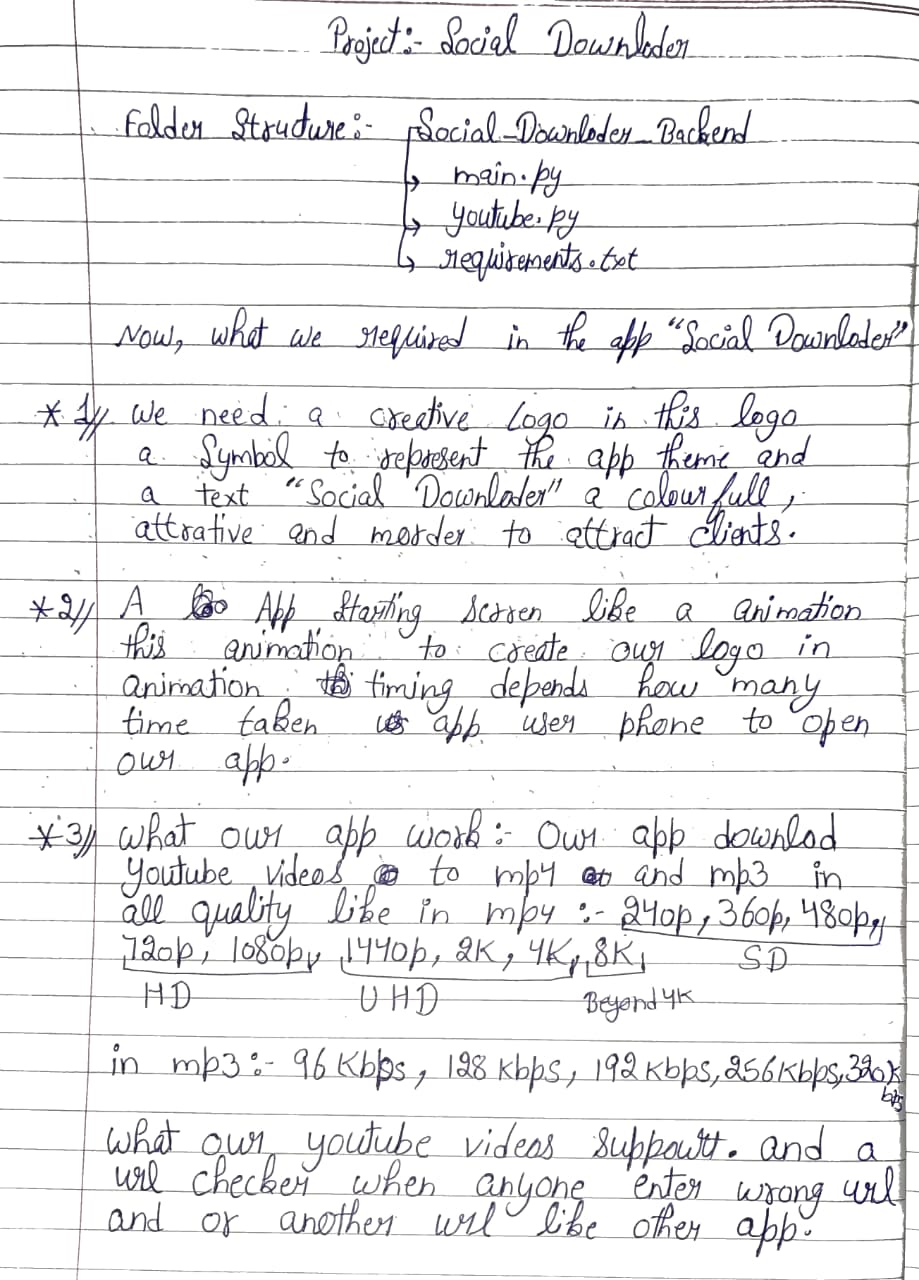 Project:- Social Downloder
Folder Structure:- Social_Downloder_Backend
main.py
youtube.py
requirements.txt
Now, what we required in the app "Social Downloder"
* 1// We need a creative Logo in this logo
a Symbol to represent the app theme and
a text "Social Downloder" a colourfull,
attrative and morder to attract clients.
* 2// A App Starting Scrren like a animation
this animation to create our logo in
animation timing depends how many
time taken app user phone to open
our app.
* 3// What our app work:- Our app downlod
Youtube videos to mp4 and mp3 in
all quality like in mp4 :- 240p, 360p, 480p,
720p, 1080p, 1440p, 2K, 4K, 8K,
SD
HD UHD Beyond 4K
in mp3:- 96 Kbps, 128 kbps, 192 kbps, 256Kbps, 320K
bps
What our youtube videos suppourtt. and a
url checker when anyone enter wrong url
and or another url like other app.